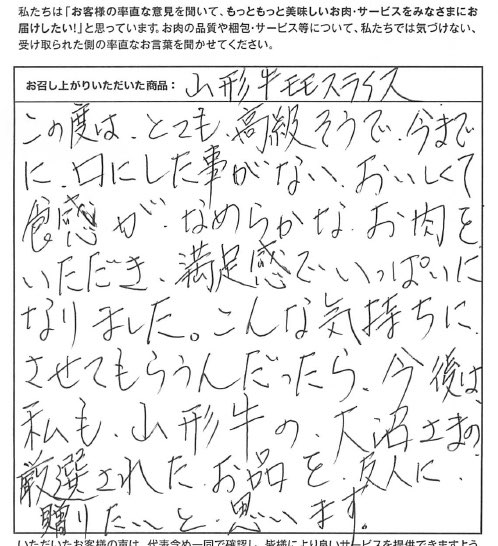 私たちは「お客様の率直な意見を聞いて、もっともっと美味しいお肉・サービスをみなさまにお
届けしたい!」と思っています。お肉の品質や梱包・サービス等について、私たちでは気づけない、
受け取られた側の率直なお言葉を聞かせてください。
お召し上がりいただいた商品: 山形牛モモスライス
この度は、とても、高級そうで、今まで
に、口にした事がない、おいしくて
食感が、なめらかな、お肉を
いただき、満足感で、いっぱいに
なりました。こんな気持ちに、
させてもらうんだったら、今後は、
私も、山形牛の、大沼さまの
厳選された、お品を、友人に、
贈りたいと、思います。
いただいたお客様の声は、代表含め一同で確認し、皆様により良いサービスを提供できますよう